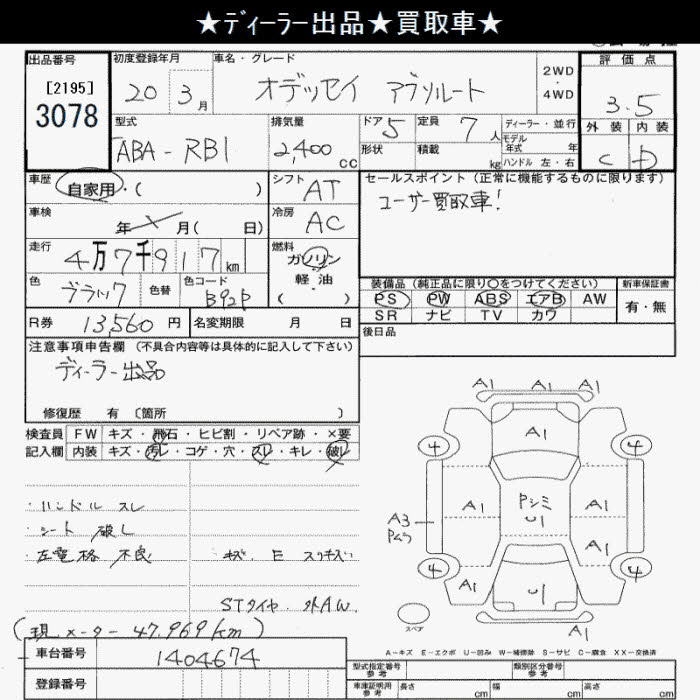 ★ディーラー出品★買取車★
出品番号 初度登録年月 車名・グレード 評価点
[2195] 3078 20 3月 オデッセイ アブソルート 2WD・4WD 3.5
型式 排気量 ドア 5 定員 7人 ディーラー・並行 外装 内装
ABA-RB1 2,400cc 形状 積載 kg モデル年式 年 ハンドル 左・右 C D
車歴 自家用・( ) シフト AT セールスポイント(正常に機能するものに限ります)
車検 年 月( 日) 冷房 AC ユーザー買取車!
走行 4万7千917km 燃料 ガソリン・軽油 ( )
色 ブラック 色替 色コード B92P 装備品(純正品に限り○をつけてください) 新車保証書
PS PW ABS エアB AW 有・無
SR ナビ TV カワ
R券 13,560円 名変期限 月 日 後日品
注意事項申告欄(不具合内容等は具体的に記入して下さい)
ディーラー出品
修復歴 有 〔箇所 〕
検査員 FW キズ・飛石・ヒビ割・リペア跡・×要
記入欄 内装 キズ・汚レ・コゲ・穴・スレ・キレ・破レ
・ハンドル スレ
・シート 破レ
・左電格 不良
STタイヤ. 外AW.
(現メーター 47.969km)
車台番号 1404674
登録番号
A1 A1 A1
④ A1 ④
A1 Pシミ U1 A1
A3 A1
④ A1 U1 A1 ④
A1
スペア
A-キズ E-エクボ U-凹み W-補修跡 S-サビ C-腐食 XX-交換済
型式指定番号 参考 類別区分番号 参考
車庫証明用 参考 長さ cm 幅 cm 高さ cm